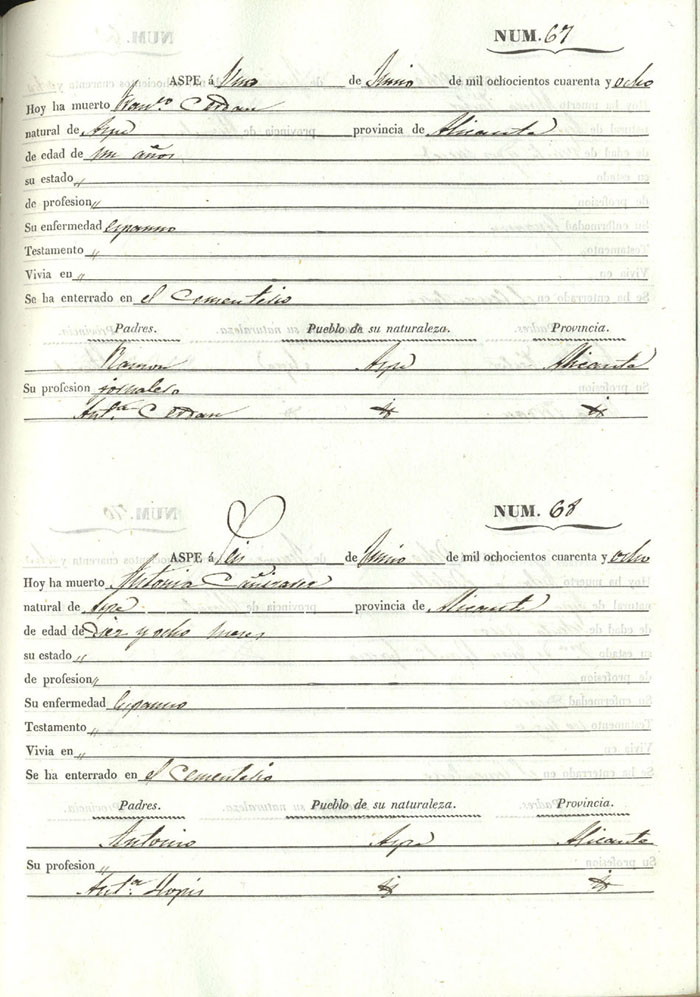 NUM. 67
ASPE á Uno de Junio de mil ochocientos cuarenta y ocho
Hoy ha muerto Ran.co Cerdan
natural de Aspe provincia de Alicante
de edad de un años
su estado "
de profesion "
Su enfermedad espasmo
Testamento "
Vivia en "
Se ha enterrado en el Cementerio
Padres. Pueblo de su naturaleza. Provincia.
Ramon Aspe Alicante
Su profesion jornalero
Ant.a Cerdan
NUM. 68
ASPE á Seis de Junio de mil ochocientos cuarenta y ocho
Hoy ha muerto Antonia
natural de Aspe provincia de Alicante
de edad de Diez y ocho meses
su estado "
de profesion "
Su enfermedad Espasmo
Testamento "
Vivia en "
Se ha enterrado en el Cementerio
Padres. Pueblo de su naturaleza. Provincia.
Antonio Aspe Alicante
Su profesion "
Ant.a Llopis